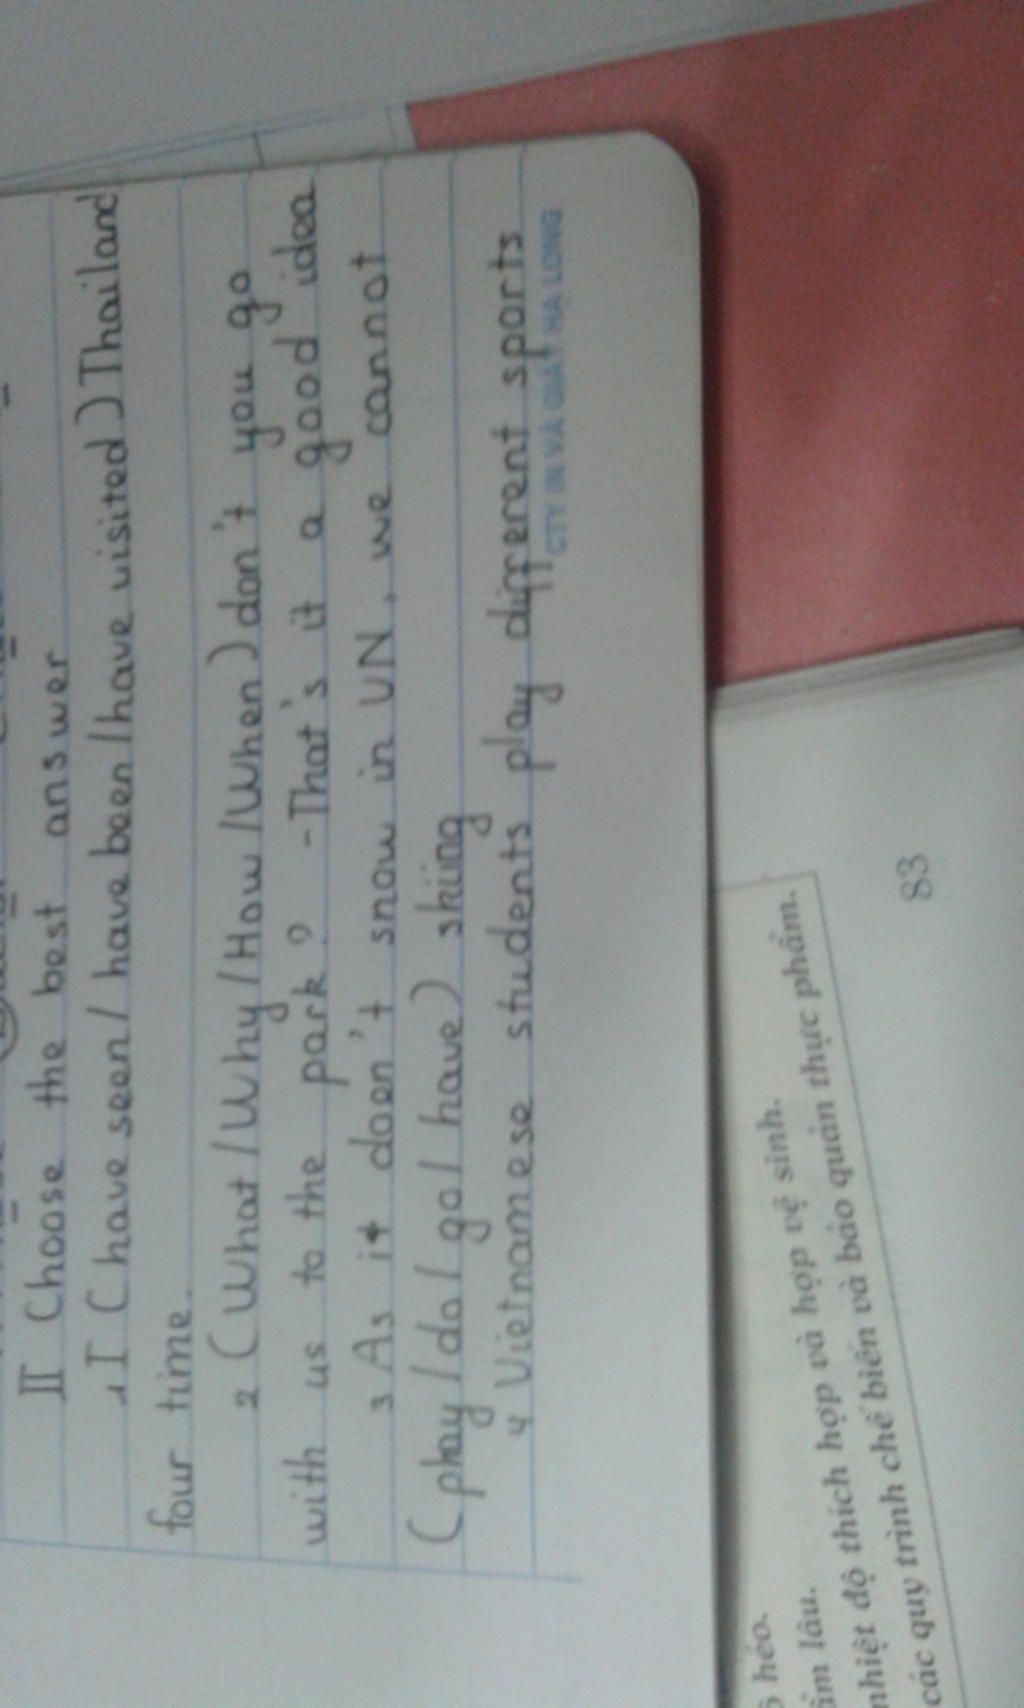 II Choose the best answer
1 I (have seen / have been / have visited) Thailand
four time.
2 (What / Why / How / When) don't you go
with us to the park? - That's it a good idea
3 As it doen't snow in VN, we cannot
(play / do / go / have) skiing
4 Vietnamese students play different sports
CTY IN VÀ GIẤY HẠ LONG
héo.
lâu.
nhiệt độ thích hợp và hợp vệ sinh.
các quy trình chế biến và bảo quản thực phẩm.
83